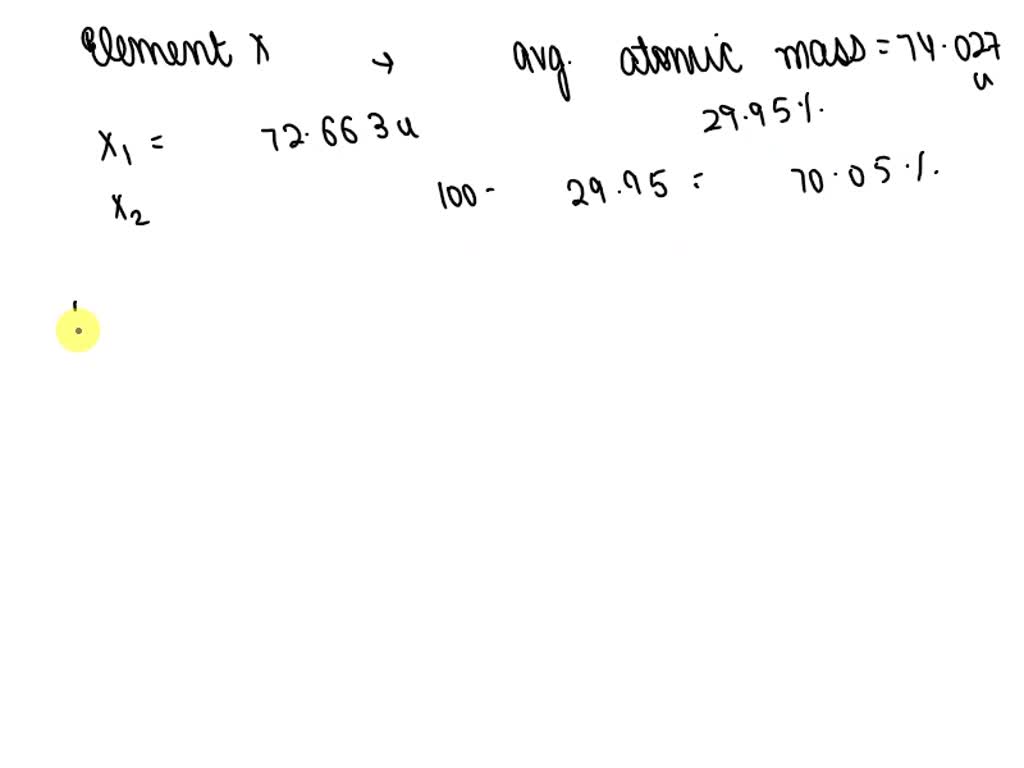 Element X → avg. atomic mass = 74.027 u
X1 = 72.663 u 29.95%.
X2 100 - 29.95 = 70.05%.